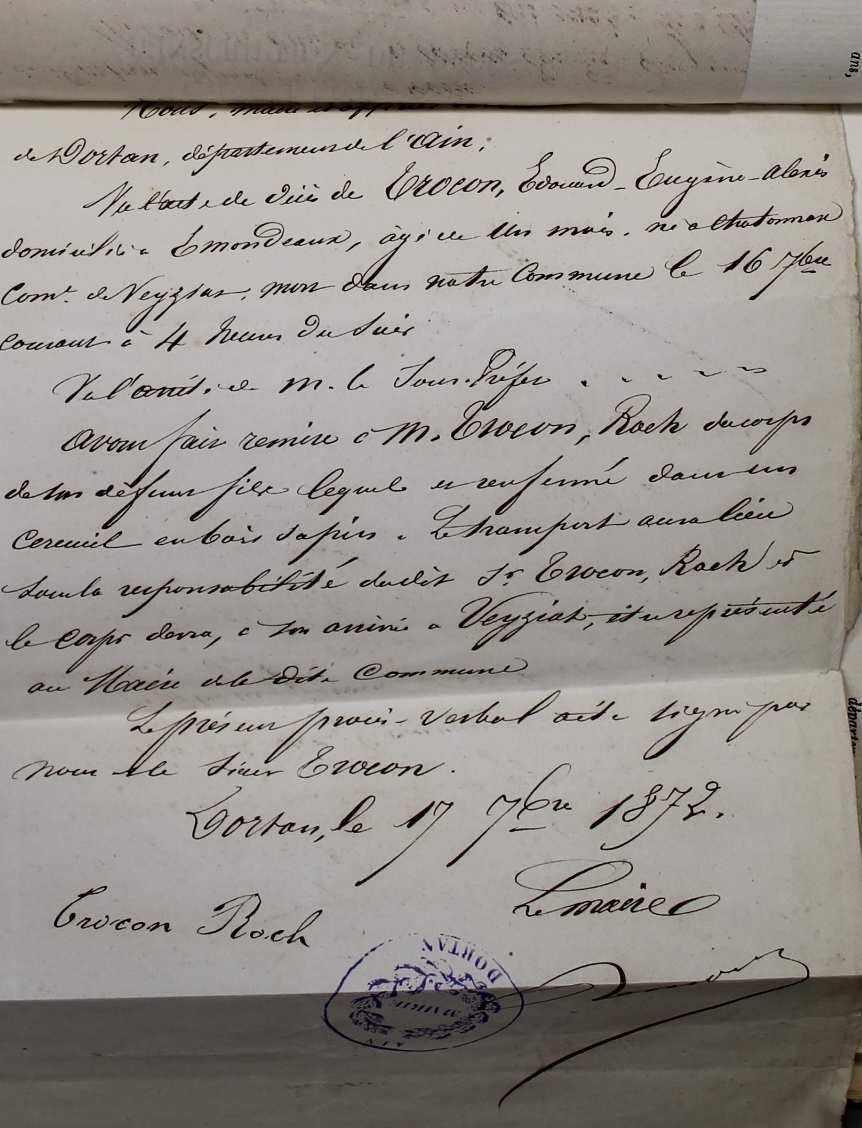 Nous, maire
de Dortan, département de l'Ain,
Vu l'acte de décès de Trocon, Edouard-Eugène-Alexis
domicilié à Emondeaux, âgé de un mois, né à Chatonnax
Comne. de Veyziat, mort dans notre Commune le 16 7bre
courant à 4 heures du soir
Vu l'arrêté de M. le Sous-Préfet
Avons fait remise à M. Trocon, Roch du corps
de son défunt fils lequel est renfermé dans un
cercueil en bois sapin. Le transport aura lieu
sous la responsabilité dudit Sr. Trocon, Roch et
le corps devra, à son arrivée à Veyziat, être représenté
au Maire de la dite Commune
Le présent procès-verbal a été signé par
nous et le sieur Trocon.
Dortan, le 17 7bre 1872.
Le maire
Trocon Roch
MAIRIE DE DORTAN
AIN
ans,